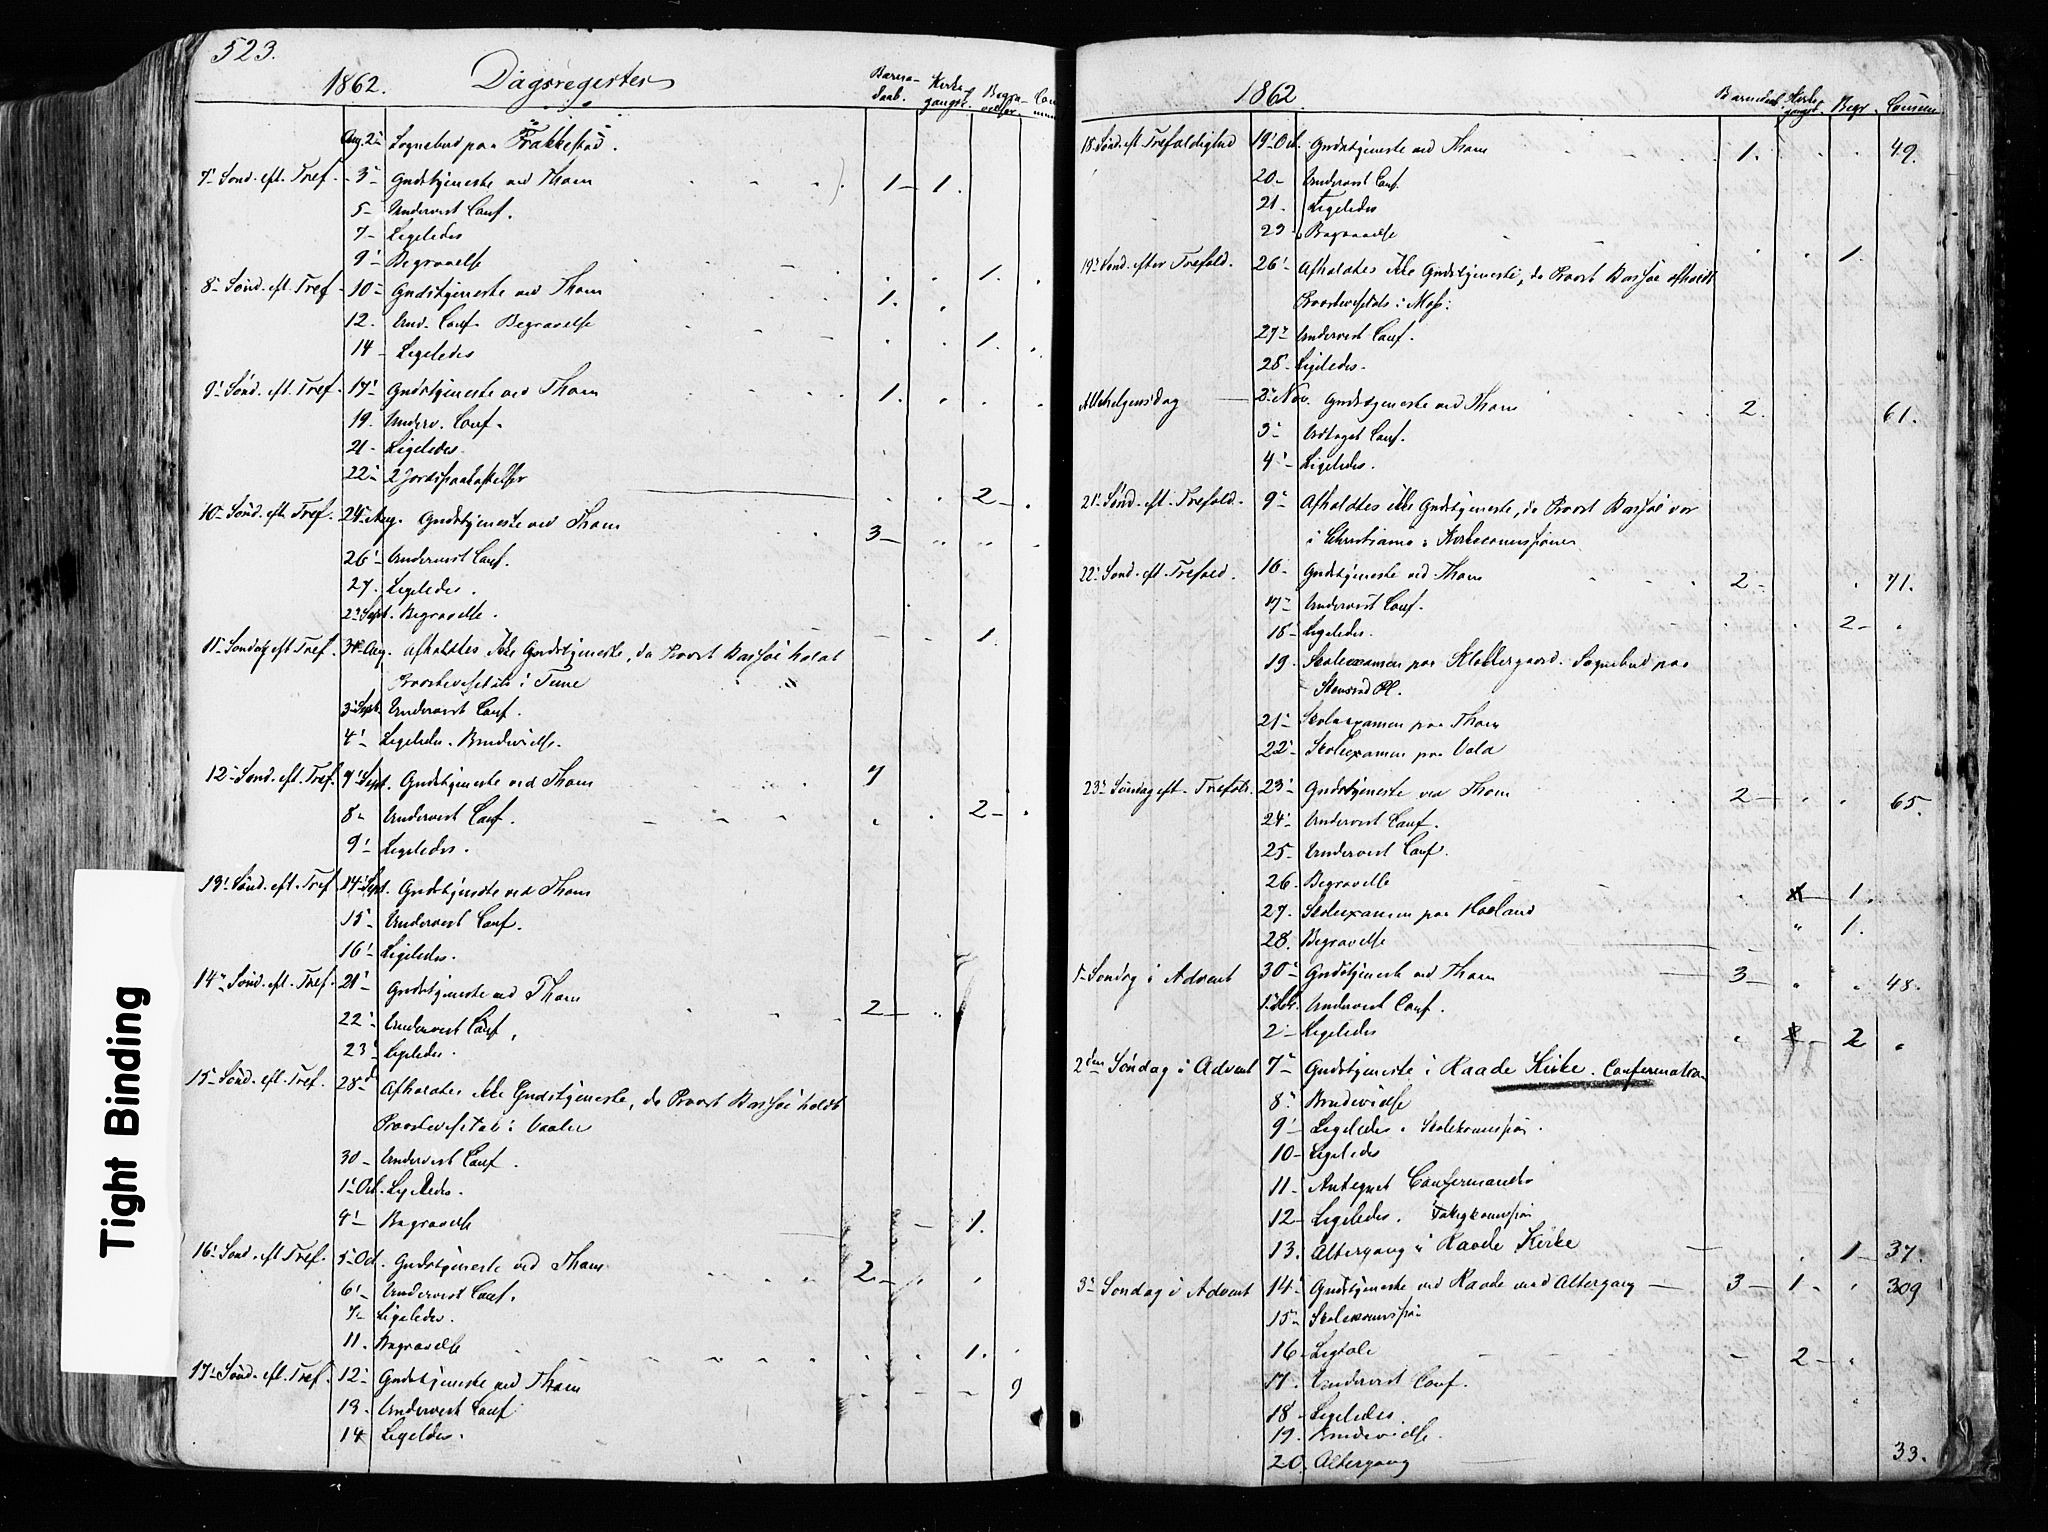 523.
1862. Dagsregister Barne- Kirke- Begra- Com
daab. gangsk. velser. mun
Aug. 2 Sognebud paa Frakkestad.
7- Sønd. eft. Tref. 3- Gudstjeneste ved Thom 1 - 1.
5- Undervist Conf.
7- Ligeledes
9- Begravelse 1.
8- Sønd. eft. Tref 10- Gudstjeneste ved Thom 1.
12. Und. Conf. Begravelse
14 - Ligeledes 1.
9- Sønd. eft. Tref. 17- Gudstjeneste ved Thom 1.
19. Underv. Conf.
21- Ligeledes
22- 2 Jordspaakastelser 2 -
10- Sønd. eft. Tref. 24- Aug. Gudstjeneste ved Thom 3 -
26- Undervist Conf.
27. Ligeledes.
2- Sept. Begravelse. 1.
11- Søndag eft Tref. 31- Aug. afholdtes ikke Gudstjeneste, da Provst holdt
Provstevisitats i Tune
3- Sept. Undervist Conf.
4- Ligeledes. Brudevielse.
12- Sønd. eft. Tref. 7- Sept. Gudstjeneste ved Thom 7
8- Undervist Conf. 2 -
9- Ligeledes.
13- Sønd. eft. Tref. 14- Sept. Gudstjeneste ved Thom
15- Undervist Conf.
16- Ligeledes.
14- Sønd. eft. Tref. 21- Gudstjeneste ved Thom 2 -
22- Undervist Conf.
23- Ligeledes.
15- Sønd. eft. Tref. 28- Afholdtes ikke Gudstjeneste, da Provst holdt
Provstevisitats i Vaaler
30 - Undervist Conf.
1- Oct. Ligeledes.
9- Begravelse 1.
16- Sønd. eft Tref. 5- Oct. Gudstjeneste ved Thom 2 -
6- Undervist Conf.
7- Ligeledes.
11. Begravelse 1.
17- Sønd. eft. Tref. 12- Gudstjeneste ved Thom 9
13. Undervist Conf.
14 Ligeledes.
1862 Barnedaab Kirkegangsk. Begr. Commun
18. Sønd. eft Trefoldighed 19- Oct. Gudstjeneste ved Thom 1. 49.
20- Undervist Conf.
21. Ligeledes
23- Begravelse 1.
19- Sønd. efter Trefold. 26- Afholdtes ikke Gudstjeneste, da Provst afholdt
Provstevisitats i Moss.
27- Undervist Conf.
28- Ligeledes.
Allehelgensdag 2- Nov. Gudstjeneste ved Thom 2. 61.
3- Undtaget Conf.
4- Ligeledes.
21- Sønd. eft. Trefold. 9- Afholdtes ikke Gudstjeneste, da Provst var
i Christiania i Kirkecommission
22- Sønd. eft. Trefold. 16- Gudstjeneste ved Thom 2 - 71.
17- Undervist Conf.
18- Ligeledes. 2 -
19. Skoleexamen paa Klostergaard. Sognebud paa
Stensrød Pl.
21- Skoleexamen paa Thom
22- Skoleexamen paa Vold
23- Søndag eft. Trefold. 23- Gudstjeneste ved Thom 2 - 65.
24- Undervist Conf.
25- Undervist Conf.
26. Begravelse 1.
27. Skoleexamen paa Haaland
28. Begravelse 1.
1- Søndag i Advent 30- Gudstjeneste ved Thom 3 - 48.
1- Dec. Undervist Conf.
2- Ligeledes 2
2den Søndag i Advent 7- Gudstjeneste i Raade Kirke. Confirmation
8- Brudevielse
9- Ligeledes. Skolecommission.
10- Ligeledes
11- Antegnet Confirmander
12- Ligeledes.
13. Altergang i Raade Kirke 1 - 37.
3- Søndag i Advent 14- Gudstjeneste ved Raade med Altergang 3 - 1 - 309
15- Skolecommission
16- Ligtale 2 -
17. Undervist Conf.
18- Ligeledes.
19. Brudevielse.
20. Altergang 33.
Tight Binding